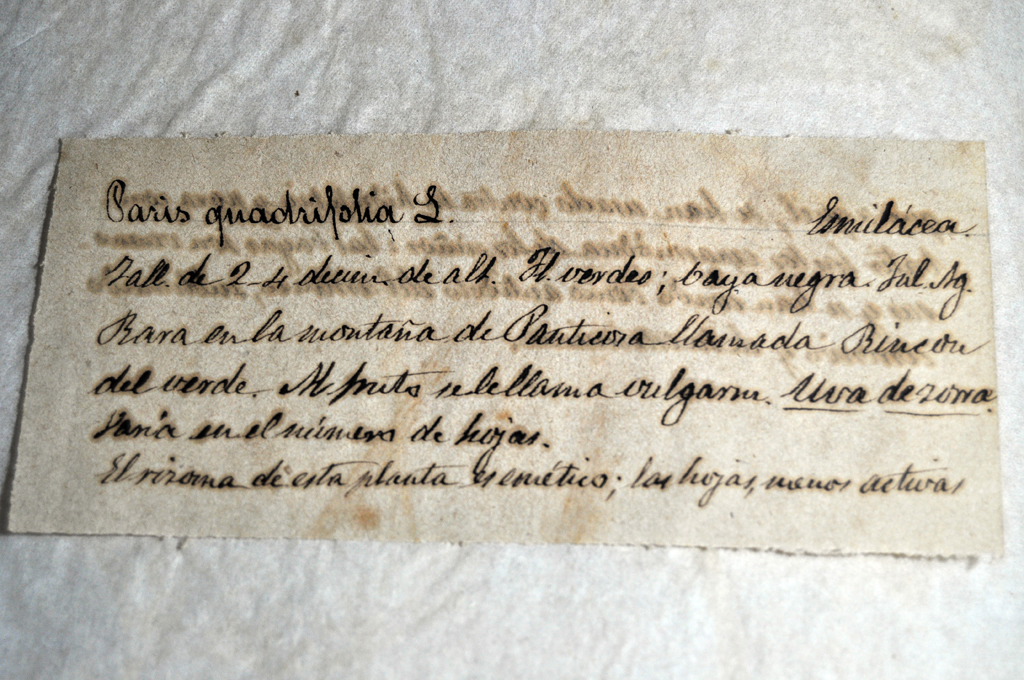 Paris quadrifolia L. Esmilácea.
Tall. de 2-4 decim. de alt. Fl. verdes; baya negra. Jul. Ag.
Rara en la montaña de Panticosa llamada Rincon
del verde. Al fruto se le llama vulgarm. Uva de zorra.
Varía en el número de hojas.
El rizoma de esta planta es emético; las hojas, menos activas